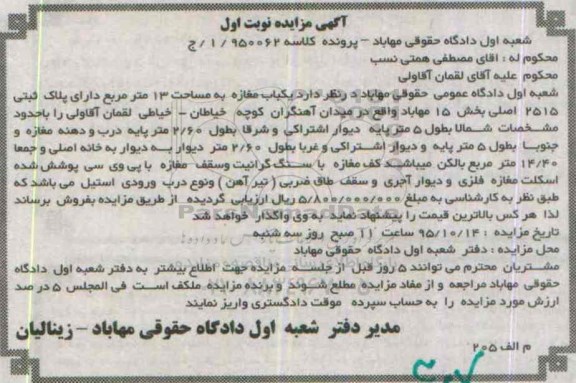 آگهی مزایده نوبت اول
شعبه اول دادگاه حقوقی مهاباد - پرونده کلاسه ۹۵۰۰۶۲ / ۱ / ج
محکوم له : اقای مصطفی همتی نسب
محکوم علیه آقای لقمان آقاولی
شعبه اول دادگاه عمومی حقوقی مهاباد در نظر دارد یکباب مغازه به مساحت ۱۳ متر مربع دارای پلاک ثبتی
۲۵۱۵ اصلی بخش ۱۵ مهاباد واقع در میدان آهنگران کوچه خیاطان - خیاطی لقمان آقاولی را باحدود
مشخصات شمالا بطول ۵ متر پایه دیوار اشتراکی و شرقا بطول ۲/۶۰ متر پایه درب و دهنه مغازه و
جنوبا بطول ۵ متر پایه و دیوار اشتراکی و غربا بطول ۲/۶۰ متر دیوار به دیوار به خانه اصلی و جمعا
۱۴/۴۰ متر مربع بالکن میباشد کف مغازه با سنگ گرانیت وسقف مغازه با پی وی سی پوشش شده
اسکلت مغازه فلزی و دیوار آجری و سقف طاق ضربی ( تیر آهن ) ونوع درب ورودی استیل می باشد که
طبق نظر به کارشناسی به مبلغ ۵/۸۰۰/۰۰۰/۰۰۰ ریال ارزیابی گردیده از طریق مزایده بفروش برساند
لذا هر کس بالاترین قیمت را پیشنهاد نماید به وی واگذار خواهد شد
تاریخ مزایده : ۹۵/۱۰/۱۴ ساعت ۱۱ صبح روز سه شنبه
محل مزایده : دفتر شعبه اول دادگاه حقوقی مهاباد
مشتریان محترم می توانند ۵ روز قبل از جلسه مزایده جهت اطلاع بیشتر به دفتر شعبه اول دادگاه
حقوقی مهاباد مراجعه و از مفاد مزایده مطلع شوند و برنده مزایده ملکف است فی المجلس ۵ در صد
ارزش مورد مزایده را به حساب سپرده موقت دادگستری واریز نمایند
مدیر دفتر شعبه اول دادگاه حقوقی مهاباد - زینالیان
م الف ۲۰۵